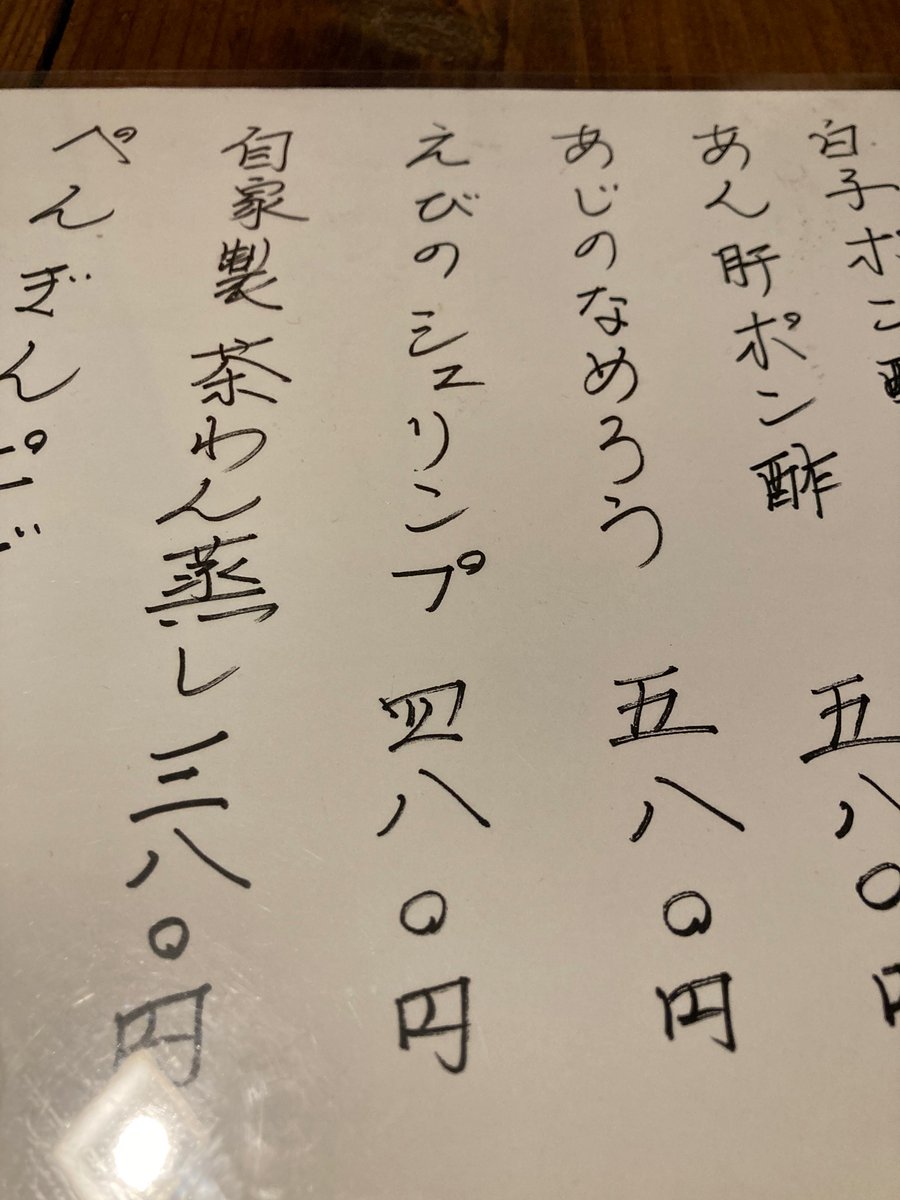 白子ポン酢
あん肝ポン酢 五八〇円
あじのなめろう 五八〇円
えびのシュリンプ 四八〇円
自家製 茶わん蒸し 三八〇円
ぺんぎん